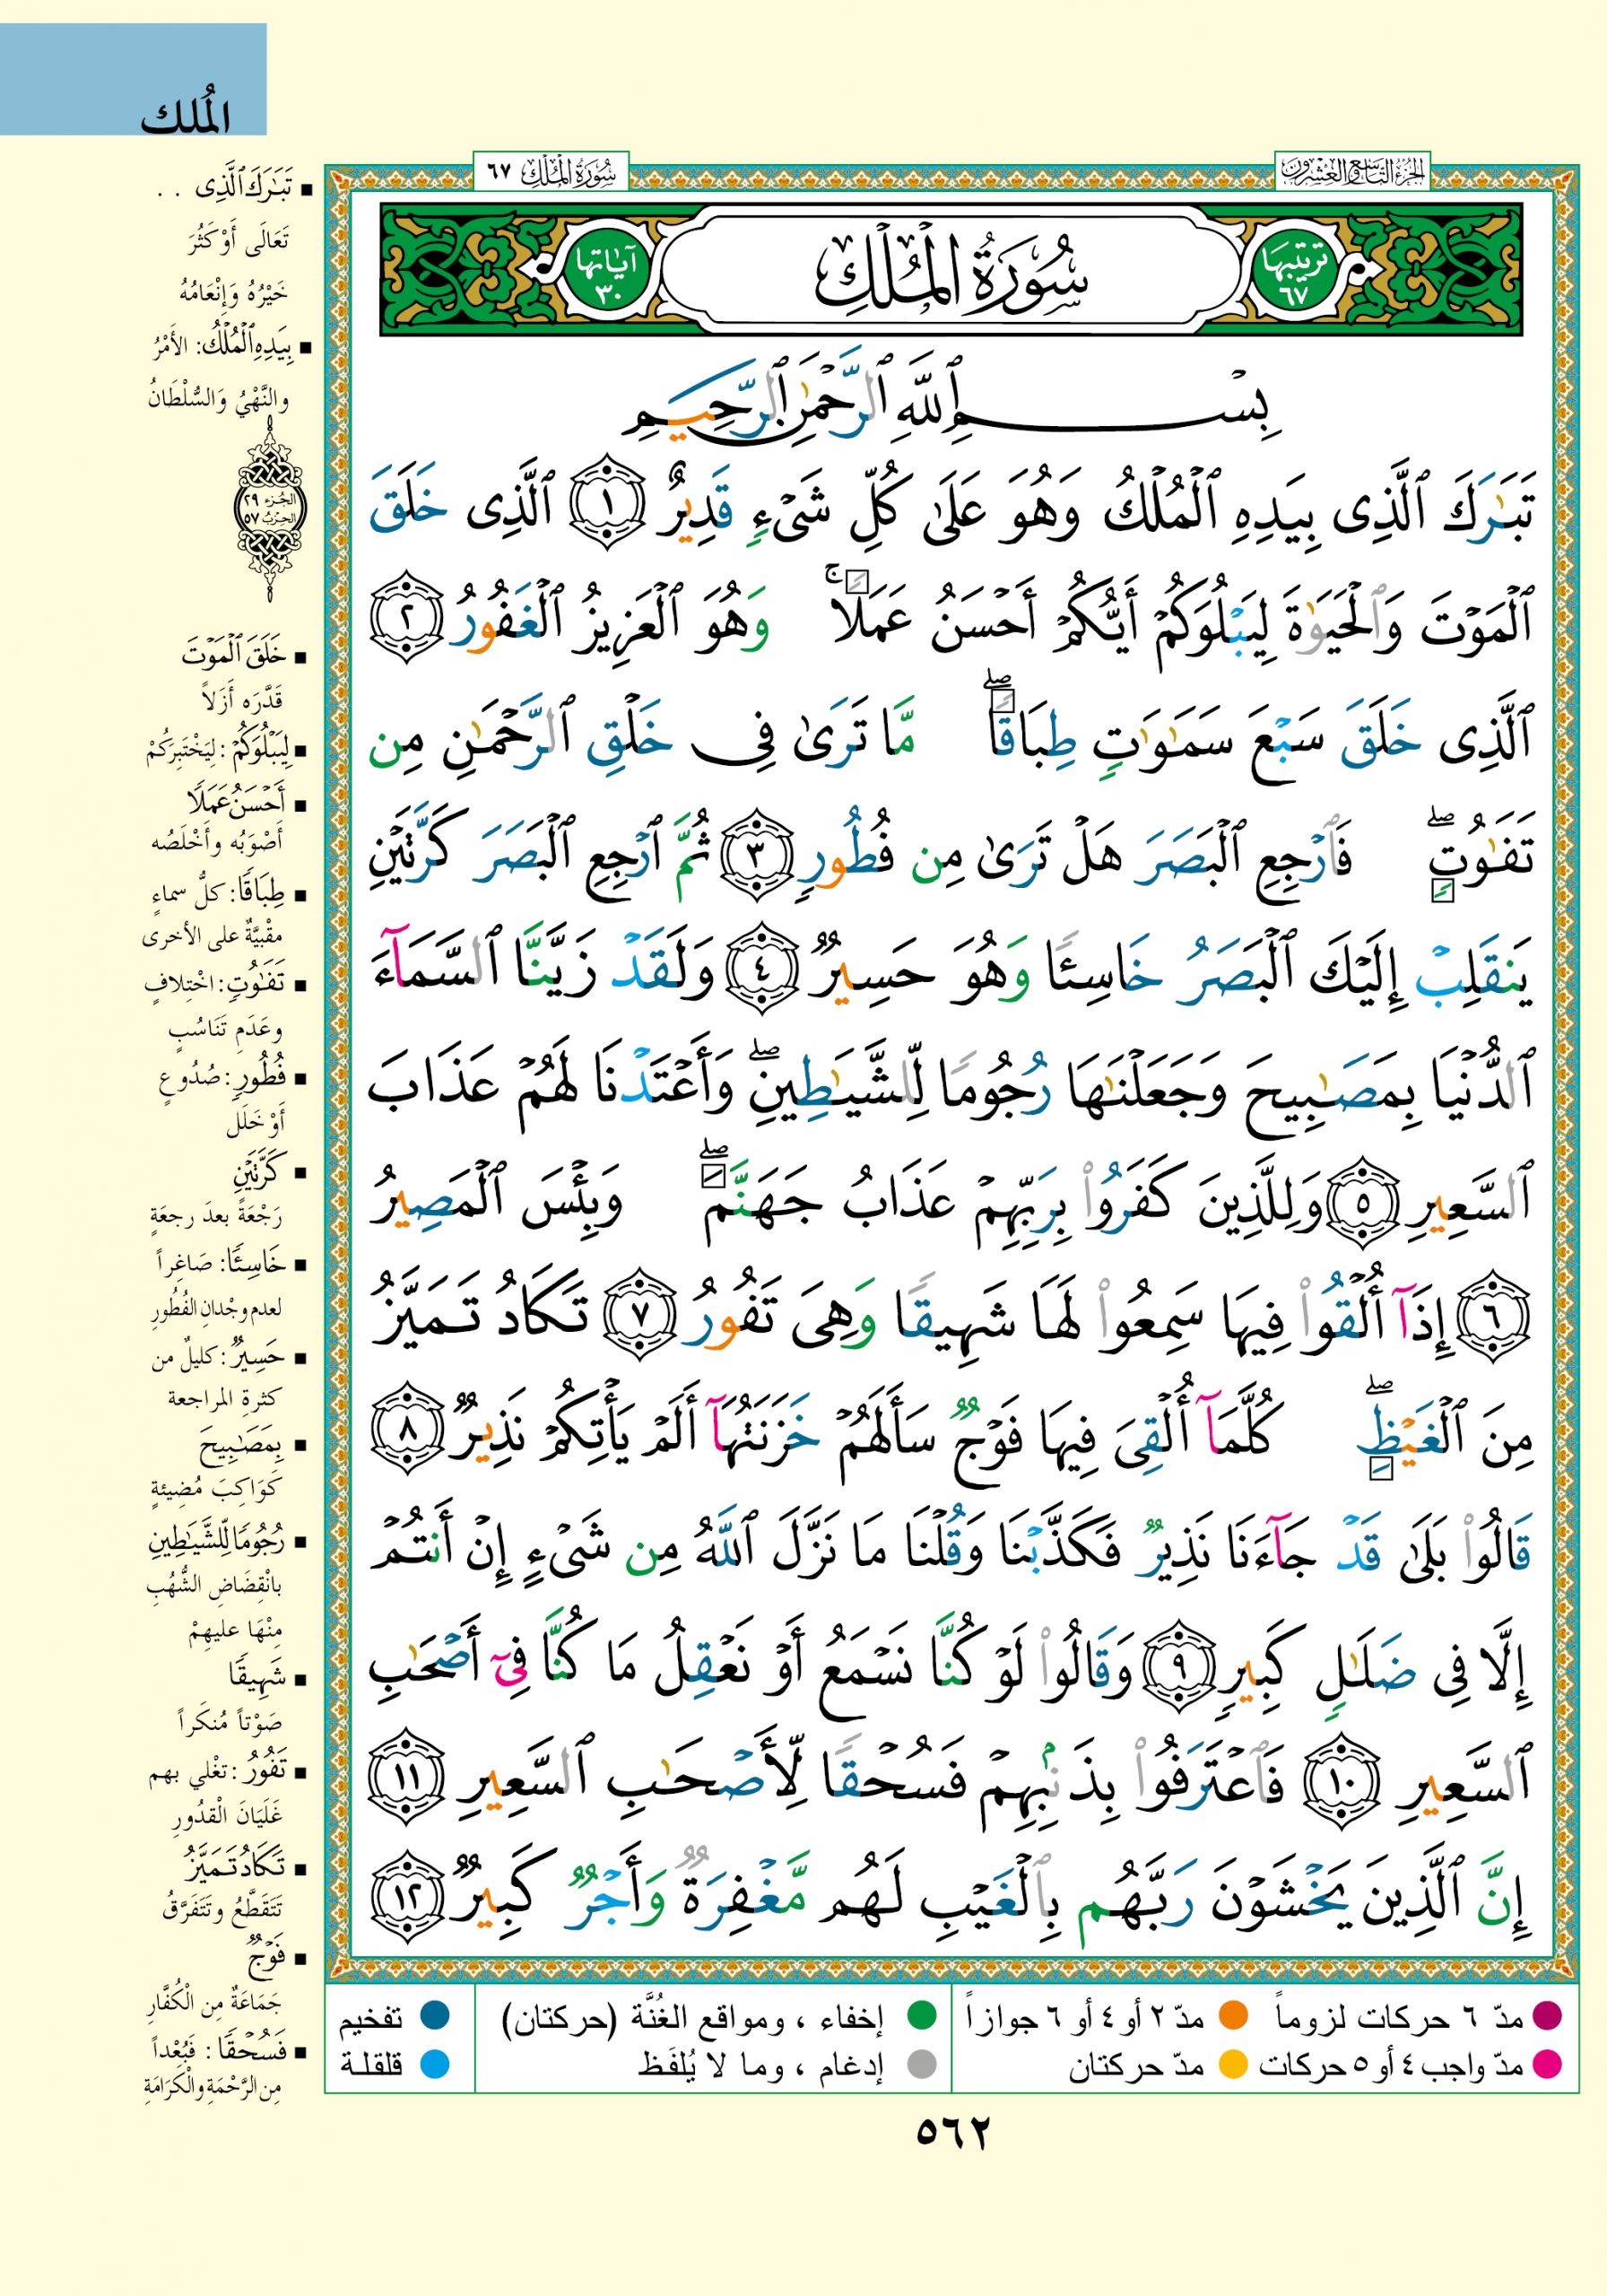 المُلك
الجزء التاسع والعشرون
سُورَةُ المُلْكِ ٦٧
ترتيبها ٦٧
سُورَةُ الْمُلْكِ
آياتها ٣٠
بِسْمِ ٱللَّهِ ٱلرَّحْمَٰنِ ٱلرَّحِيمِ
تَبَٰرَكَ ٱلَّذِى بِيَدِهِ ٱلْمُلْكُ وَهُوَ عَلَىٰ كُلِّ شَىْءٍ قَدِيرٌ ١ ٱلَّذِى خَلَقَ
ٱلْمَوْتَ وَٱلْحَيَوٰةَ لِيَبْلُوَكُمْ أَيُّكُمْ أَحْسَنُ عَمَلًا ۚ وَهُوَ ٱلْعَزِيزُ ٱلْغَفُورُ ٢
ٱلَّذِى خَلَقَ سَبْعَ سَمَٰوَٰتٍ طِبَاقًا ۖ مَّا تَرَىٰ فِى خَلْقِ ٱلرَّحْمَٰنِ مِن
تَفَٰوُتٍ ۖ فَٱرْجِعِ ٱلْبَصَرَ هَلْ تَرَىٰ مِن فُطُورٍ ٣ ثُمَّ ٱرْجِعِ ٱلْبَصَرَ كَرَّتَيْنِ
يَنقَلِبْ إِلَيْكَ ٱلْبَصَرُ خَاسِئًا وَهُوَ حَسِيرٌ ٤ وَلَقَدْ زَيَّنَّا ٱلسَّمَآءَ
ٱلدُّنْيَا بِمَصَٰبِيحَ وَجَعَلْنَٰهَا رُجُومًا لِّلشَّيَٰطِينِ ۖ وَأَعْتَدْنَا لَهُمْ عَذَابَ
ٱلسَّعِيرِ ٥ وَلِلَّذِينَ كَفَرُوا۟ بِرَبِّهِمْ عَذَابُ جَهَنَّمَ ۖ وَبِئْسَ ٱلْمَصِيرُ
٦ إِذَآ أُلْقُوا۟ فِيهَا سَمِعُوا۟ لَهَا شَهِيقًا وَهِىَ تَفُورُ ٧ تَكَادُ تَمَيَّزُ
مِنَ ٱلْغَيْظِ ۖ كُلَّمَآ أُلْقِىَ فِيهَا فَوْجٌ سَأَلَهُمْ خَزَنَتُهَآ أَلَمْ يَأْتِكُمْ نَذِيرٌ ٨
قَالُوا۟ بَلَىٰ قَدْ جَآءَنَا نَذِيرٌ فَكَذَّبْنَا وَقُلْنَا مَا نَزَّلَ ٱللَّهُ مِن شَىْءٍ إِنْ أَنتُمْ
إِلَّا فِى ضَلَٰلٍ كَبِيرٍ ٩ وَقَالُوا۟ لَوْ كُنَّا نَسْمَعُ أَوْ نَعْقِلُ مَا كُنَّا فِىٓ أَصْحَٰبِ
ٱلسَّعِيرِ ١٠ فَٱعْتَرَفُوا۟ بِذَنۢبِهِمْ فَسُحْقًا لِّأَصْحَٰبِ ٱلسَّعِيرِ ١١
إِنَّ ٱلَّذِينَ يَخْشَوْنَ رَبَّهُم بِٱلْغَيْبِ لَهُم مَّغْفِرَةٌ وَأَجْرٌ كَبِيرٌ ١٢
▪ تَبَٰرَكَ ٱلَّذِى . .
تَعَالَى أَوْ كَثُرَ
خَيْرُهُ وَإِنْعَامُهُ
▪ بِيَدِهِ ٱلْمُلْكُ: الأَمْرُ
والنَّهْيُ وَالسُّلْطَانُ
الجُزء ٢٩
الحِزبُ ٥٧
▪ خَلَقَ ٱلْمَوْتَ
قَدَّرَه أَزَلاً
▪ لِيَبْلُوَكُمْ: لِيَخْتَبِرَكُمْ
▪ أَحْسَنُ عَمَلًا
أَصْوَبُه وأَخْلَصُه
▪ طِبَاقًا: كلُّ سماءٍ
مقْبيَّةٌ على الأخرى
▪ تَفَٰوُتٍ: اخْتِلافٍ
وعَدَمِ تَنَاسُبٍ
▪ فُطُورٍ: صُدُوعٍ
أَوْ خَلَل
▪ كَرَّتَيْنِ
رَجْعَةً بعدَ رجعَةٍ
▪ خَاسِئًا: صَاغِراً
لعدم وجْدانِ الفُطُورِ
▪ حَسِيرٌ: كليلٌ من
كثرةِ المراجعة
▪ بِمَصَٰبِيحَ
كَوَاكِبَ مُضِيئةٍ
▪ رُجُومًا لِّلشَّيَٰطِينِ
بانْقِضَاضِ الشُّهُبِ
مِنْهَا عليهِمْ
▪ شَهِيقًا
صَوْتاً مُنكَراً
▪ تَفُورُ: تغْلي بهم
غَلَيَانَ الْقدُورِ
▪ تَكَادُ تَمَيَّزُ
تَتَقَطَّعُ وتَتَفَرَّقُ
▪ فَوْجٌ
جَمَاعَةٌ مِن الْكُفَّارِ
▪ فَسُحْقًا: فَبُعْداً
مِن الرَّحْمَةِ والْكَرَامَةِ
مدّ ٦ حركات لزوماً
مدّ ٢ أو ٤ أو ٦ جوازاً
إخفاء ، ومواقع الغُنَّة (حركتان)
تفخيم
مدّ واجب ٤ أو ٥ حركات
مدّ حركتان
إدغام ، وما لا يُلفَظ
قلقلة
٥٦٢